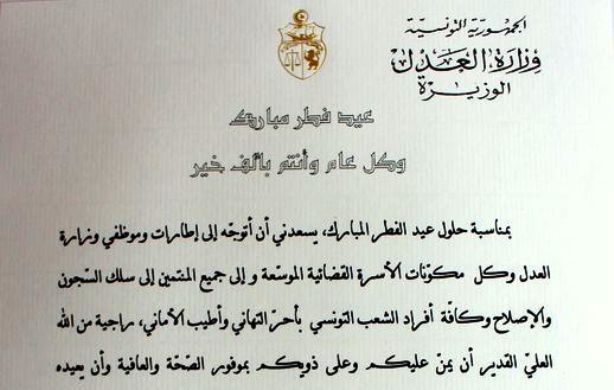 الجمهورية التونسية
وزارة العدل
الوزيرة
عيد فطر مبارك
وكل عام وأنتم بألف خير
بمناسبة حلول عيد الفطر المبارك، يسعدني أن أتوجّه إلى إطارات وموظفي وزارة
العدل وكل مكوّنات الأسرة القضائية الموسّعة و إلى جميع المنتمين إلى سلك السّجون
والإصلاح وكافّة أفراد الشعب التونسي بأحرّ التهاني وأطيب الأماني، راجية من الله
العليّ القدير أن يمنّ عليكم وعلى ذويكم بموفور الصّحّة والعافية وأن يعيده